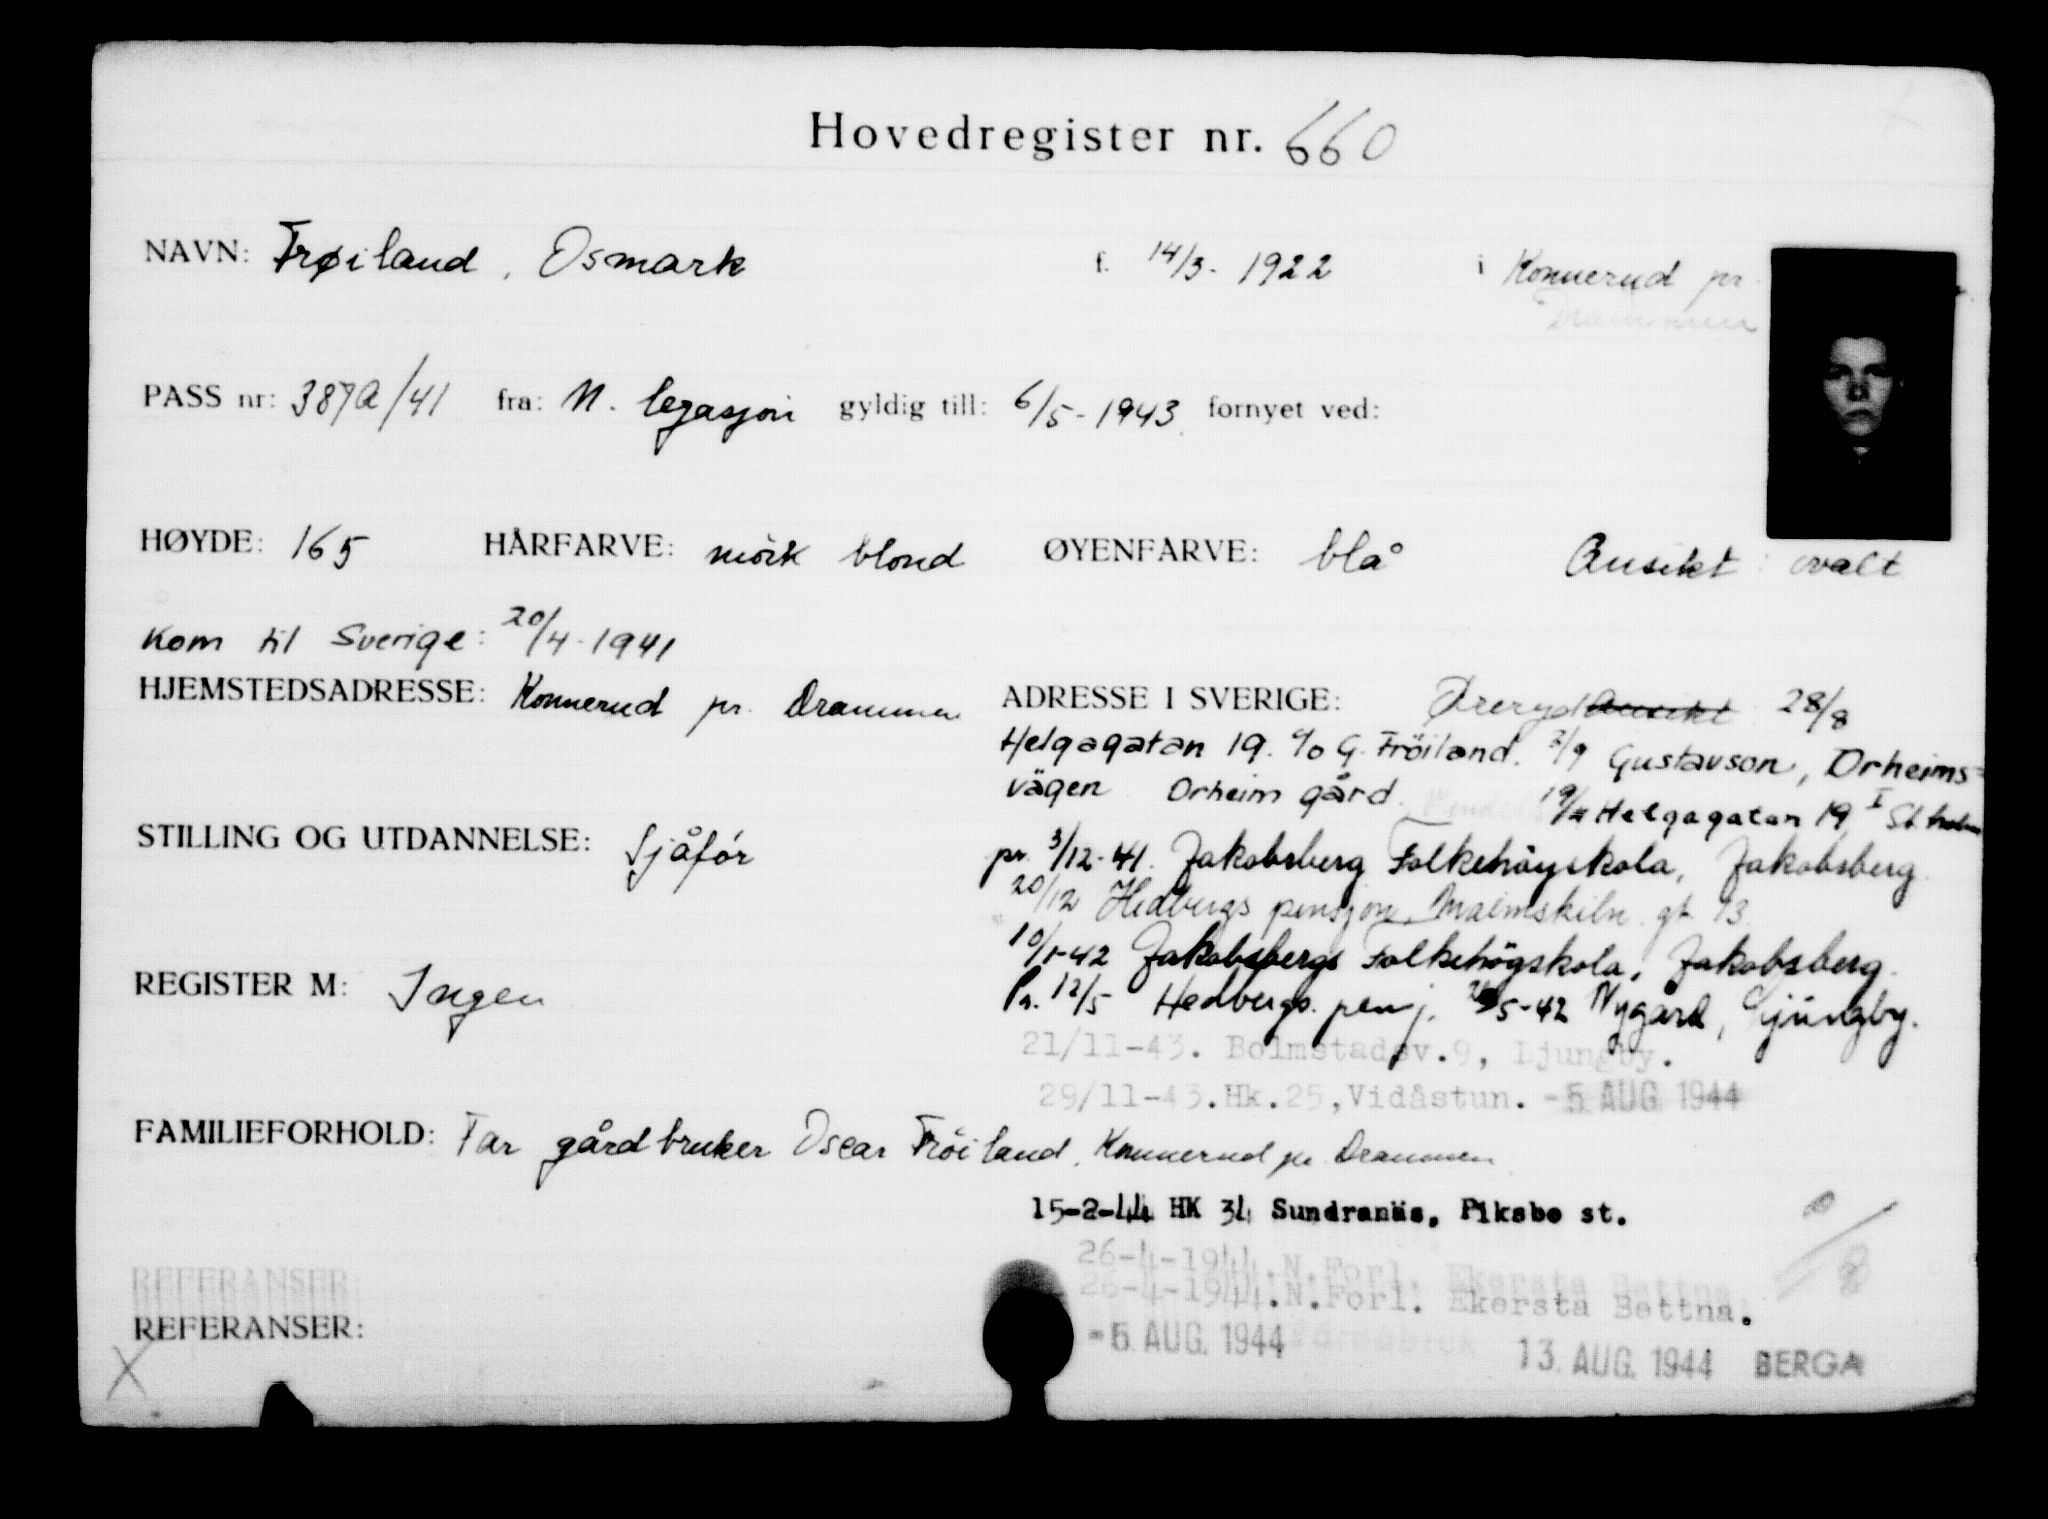 Hovedregister nr. 660
NAVN: Frøiland, Osmark f. 14/3- 1922 i Konnerud pr.
Drammen
PASS nr: 387a/41 fra: N. legasjon gyldig till: 6/5-1943 fornyet ved:
HØYDE: 165 HÅRFARVE: mörk blond ØYENFARVE: blå Ansikt: ovalt
Kom til Sverige: 20/4-1941
HJEMSTEDSADRESSE: Konnerud pr. Drammen
ADRESSE I SVERIGE: Øreryd Ansikt 28/8
Helgagatan 19. c/o G. Fröiland. 2/9 Gustavson, Orheims-
vägen Orheim gård. Helgagatan 19 I St.holm
STILLING OG UTDANNELSE: Sjåfór
pr. 3/12-41. Jakobsberg Folkehöyskola, Jakobsberg.
20/12 Hedbergs pensjon, Malmskiln. gt 13.
10/1-42 Jakobsbergs Folkehögskola, Jakobsberg.
Pr. 12/5 Hedbergs. pensj. 5-42 Nygård, Ljungby.
REGISTER M: Ingen
21/11-43. Bolmstadsv.9, Ljungby.
29/11-43.Hk.25,Vidåstun. -5 AUG 1944
FAMILIEFORHOLD: Far gårdbruker Oscar Fröiland, Konnerud pr. Drammen
15-2-44 HK 34 Sundranäs, Fiksbo st.
26-4-1944.N.Forl. Ekersta Bettna.
26-4-1944.N.Forl. Ekersta Bettna.
REFERANSER:
REFERANSER:
-5. AUG. 1944 13. AUG. 1944 BERGA
X